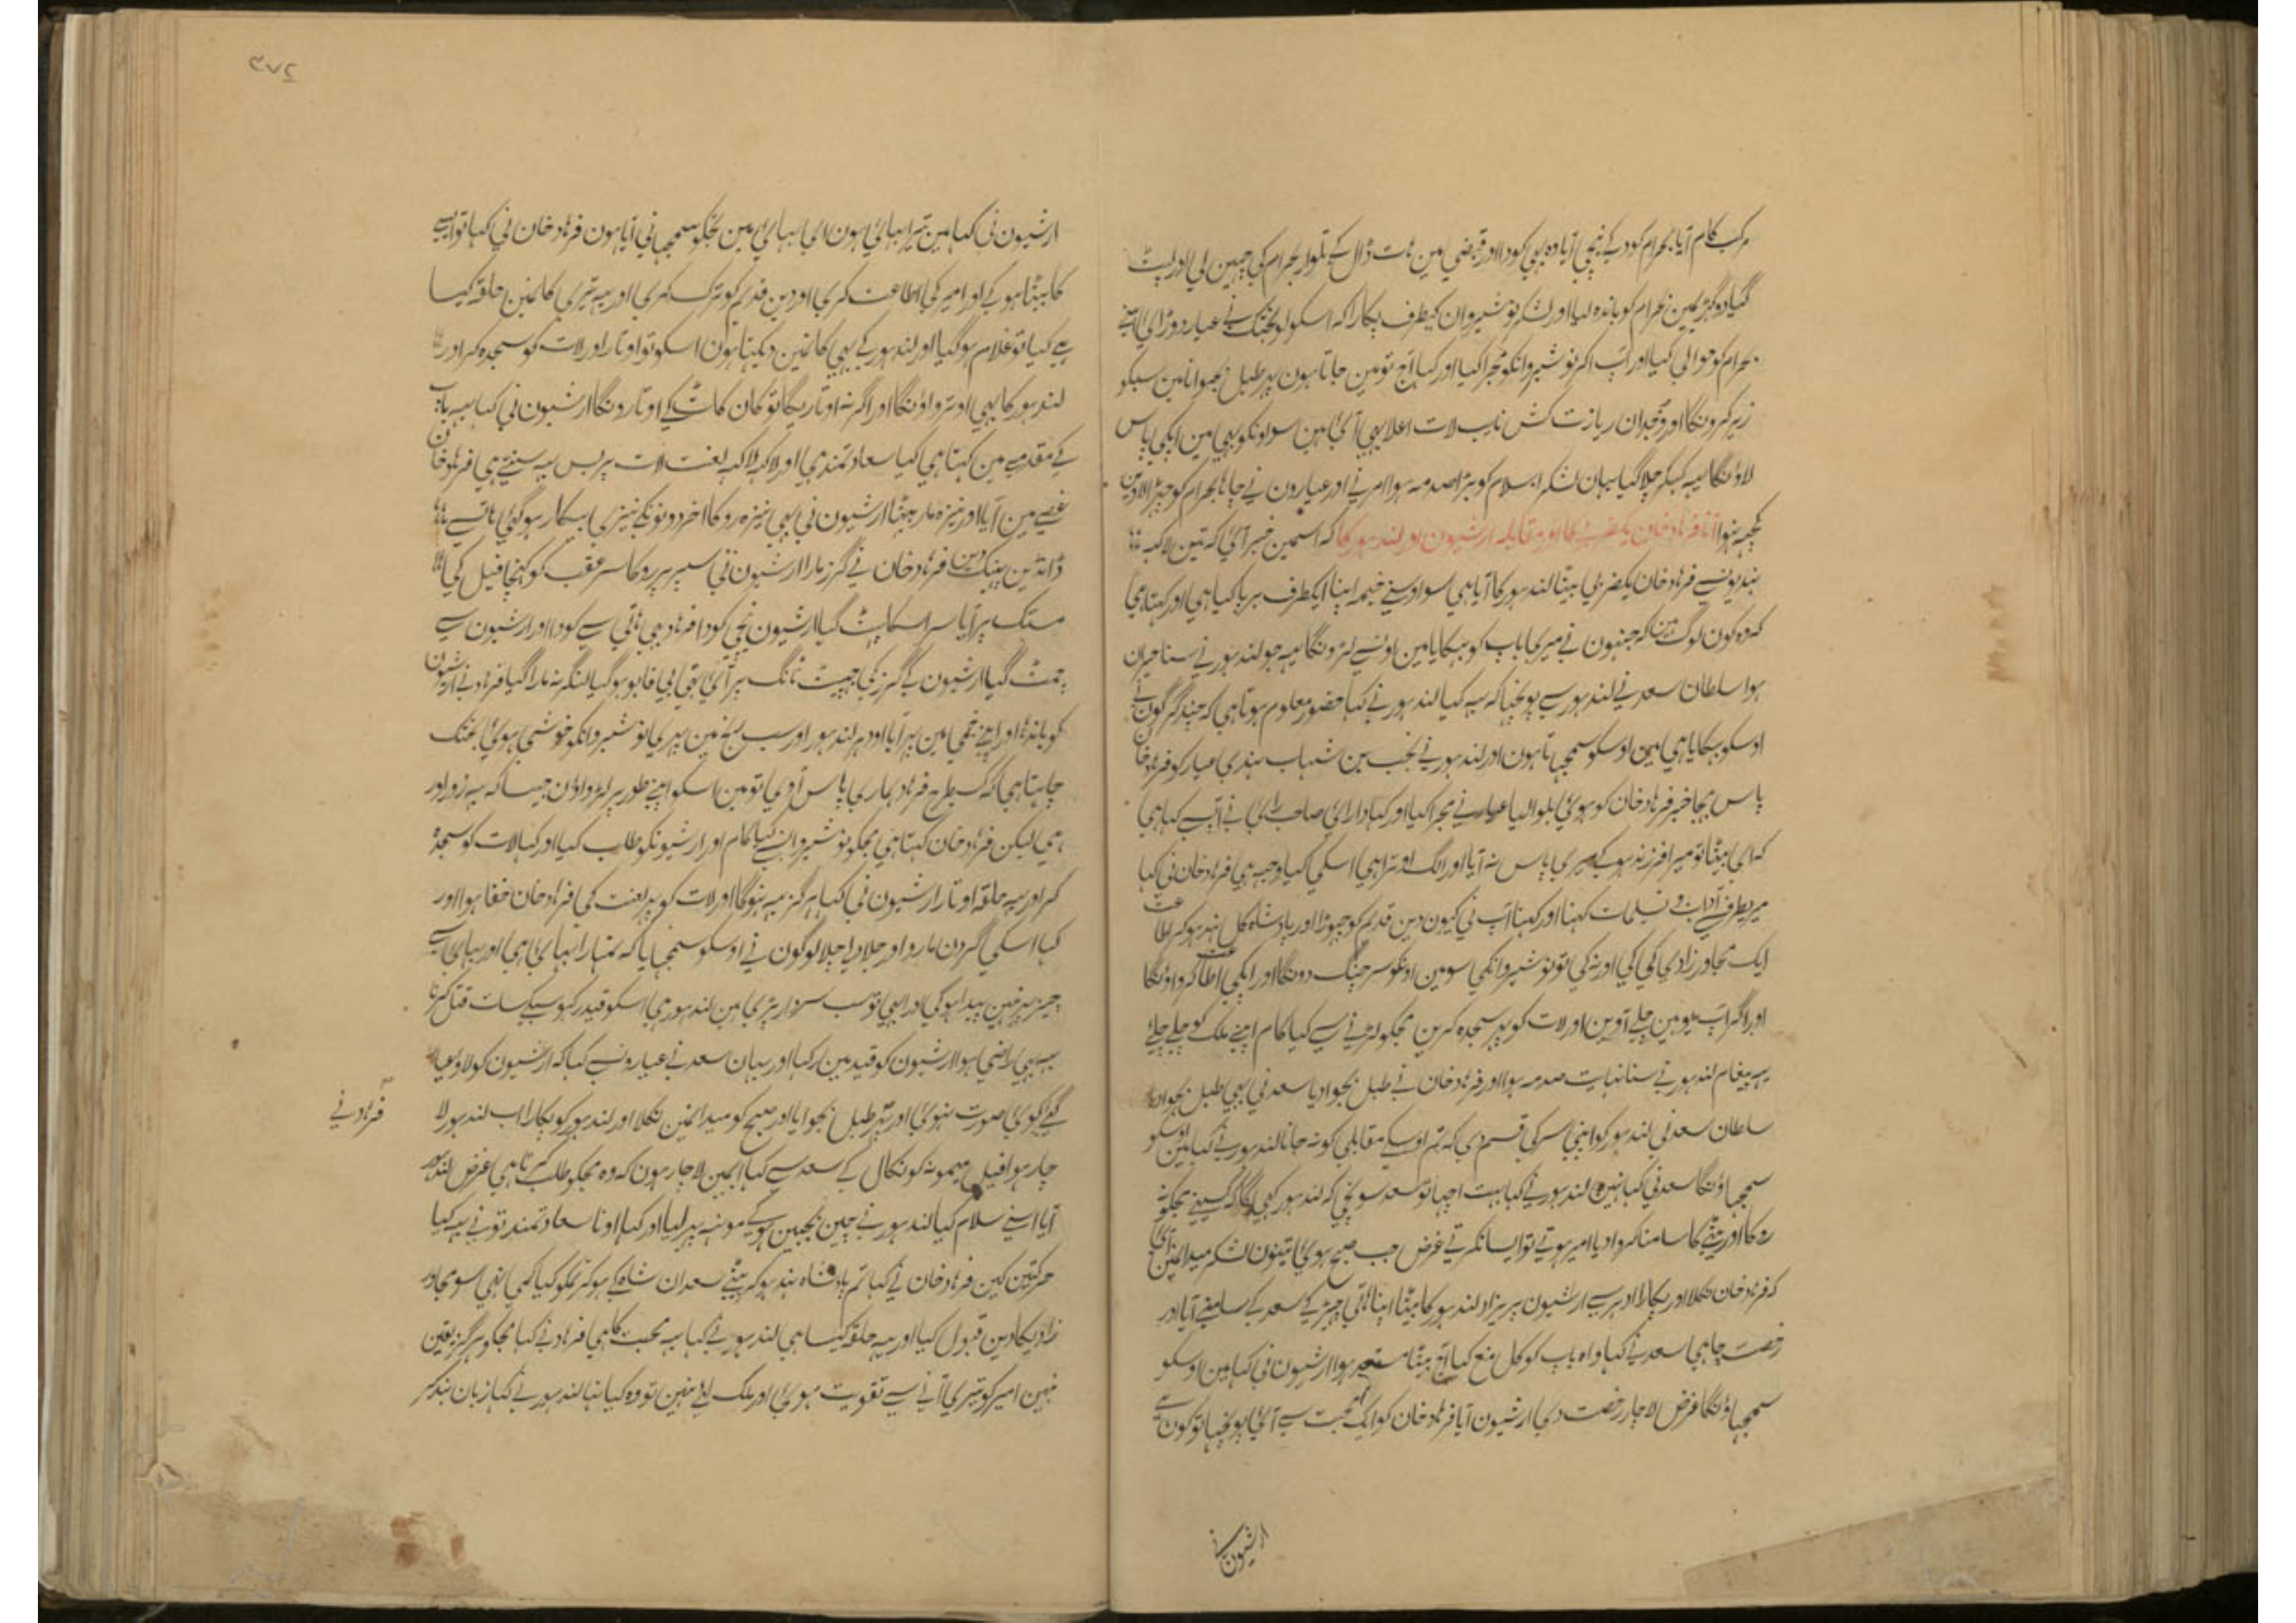 مرکب کام آیا بہرام کود کے نیچی آیا وہ بہی کودا اور قبضی مین ہات ڈال کے تلوار بہرام کی چہین لی اور لپٹ
گیا دو گہڑیمین بہرام کو باندہ لیا اور لشکر نوشیروان کیطرف پکارا کہ اسکو لو بختک نے عیار دوڑائی اپنے
بہرام کو حوالی کیا اور آپ اکر نوشیروانکو مجرا کیا اور کہا آج تو مین جاتا ہون پہر طبل بجوانا مین سبکو
زیر کرونگا اور وجدان ریازت کش نایب لات اعلا بہی آئی ہین سو اونکو بہی مین اپکی پاس
لاونگا یہہ کہکر چلا گیا یہان لشکر اسلام کو بڑا صدمہ ہوا امر نے اور عیارون نے چاہا بہرام کو چہڑا لاوین
کچہہ نہوا آنا فرہاد خان یکضربی کا اور مقابلہ ارشیون اور لندہور کا کہ اسمین خبر آئی کہ تین لاکہہ
ہندیونسے فرہاد خان یکضربی بیٹا لندہور کا آیا ہی سو اوسنے خیمہ اپنا ایکطرف برپا کیا ہی اور کہتا ہی
کہ وہ کون لوگ ہین کہ جنہون نے میری باپ کو بہکایا مین اونسے لڑونگا یہہ جو لندہور نے سنا حیران
ہوا سلطان سعد نے لندہور سے پوچہا کہ یہہ کیا لندہور نے کہا حضور معلوم ہوتا ہی کہ چند گرگون نے
اوسکو بہکایا ہی مین اوسکو سمجہاتا ہون اور لندہور نے نجب بن شہاب ہندی عیار کو فرہاد خان
پاس بہیجا خبر فرہاد خان کو ہوئی بلوا لیا عیار نے مجرا کیا اور کہا دارای صاحب رای نے آپسے کہا ہی
کہ ای بیٹا تو میرا فرزند ہو کے میری پاس نہ آیا اور الگ اوترا ہی اسکی کیا وجہہ ہی فرہاد خان نی کہا
میریطرف سے آداب و تسلیمات کہنا اور کہنا آپ نی کیون دین قدیم کو چہوڑا اور پادشاہ کل ہند ہو کر اطاعت
ایک مجاور زادی کی کی اور نہ کی تو نوشیروانکی سو مین اونکو سر جنگ دونگا اور اپکی اطاعت کرواونگا
اور اگر آپ یونہین چلے آوین اور لات کو پہر سجدہ کرین مجکو لڑنے سے کیا کام اپنے ملک کو چلے چلئے
یہہ پیغام لندہور نے سنا نہایت صدمہ ہوا اور فرہاد خان نے طبل بجوا دیا سعد نی بہی طبل بجوا دیا
سلطان سعد نی لندہور کو اپنی سر کی قسم دی کہ تم اوسکے مقابلی کو نہ جانا لندہور نے کہا مین اوسکو
سمجہاونگا سعد نی کہا نہین لندہور نے کہا بہت اچہا تو سعد سونچی کہ لندہور کہیگا کہ کسینے مجکو نہ
روکا اور بیٹی کا سامنا کروا دیا امیر ہوتے تو ایسا نکرتے غرض جب صبح ہوئی تینون لشکر میدانمین آئی
کہ فرہاد خان نکلا اور پکارا ادہر سے ارشیون پریزاد لندہور کا بیٹا اپنا ہاتی چہڑ کے سعد کے سامنے آیا اور
رخصت چاہی سعد نے کہا واہ باپ کو کل منع کیا آج بیٹا مستعد ہوا ارشیون نی کہا مین اوسکو
سمجہاونگا غرض لاچار رخصت دی ارشیون آیا فرہاد خان کو ایک محبت سے آئی پوچہا تو کون ہے
ارشیون نے
۳۷۲
ارشیون نی کہا مین تیرا بہائی ہون ای بہائی مین تجکو سمجہانی آیا ہون فرہاد خان نی کہا تو ایسے
کا بیٹا ہو کے او امیر کی اطاعت کری اور دین قدیم کو ترک کری اور یہہ تیری کانمین حلقہ کیا
ہی کیا تو غلام ہو گیا اور لندہور کے بہی کانمین دیکہتا ہون اسکو تو اوتار اور لات کو سجدہ کر اور
لندہور کا بہی اوترواونگا اور اگر نہ اوتاریگا تو کان کاٹ کے اوتارونگا ارشیون نی کہا یہہ باپ
کے مقدمے مین کہتا ہی کیا سعادتمند ہی اور لاکہہ لاکہہ لعنت لات پر بس یہہ سنتے ہی فرہاد خان
غصے مین آیا اور نیزہ مار بیٹہا ارشیون نی بہی نیزہ روکا آخر دونونکے نیزی بیکار ہو گئی ہاتسے
ڈانڈین پہینک دین فرہاد خان نے گرز مارا ارشیون نی سپر پر روکا سر عقب کو کہنچا فیل کی
مستک پر آیا سر اسکا پہٹ گیا ارشیون نیچی کودا فرہاد بہی ہاتی سے کودا اور ارشیون سے
چمٹ گیا ارشیون کے گرز کی جہپٹ ٹانگ پر آئی تہی بی قابو ہو گیا لنگر نہ مارا گیا فرہاد نے ارشیون
کو باندہا اور اپنے خیمی مین پہر آیا اودہر لندہور اور سب رنج مین پہری نوشیروانکو خوشی ہوئی بختک
چاہتا ہی کہ کسیطرح فرہاد ہماری پاس آوی تو مین اسکو اپنے طور پر لڑواون جیسا کہ یہہ زوراور
ہی لیکن فرہاد خان کہتا ہی مجکو نوشیروانسے کیا کام اور ارشیونکو طلب کیا اور کہا لات کو سجدہ
کر اور یہہ حلقہ اوتار ارشیون نی کہا ہرگز یہہ نہوگا اور لات کو پہر لعنت کی فرہاد خان خفا ہوا اور
کہا اسکی گردن مارو اور جلاد اجلا لوگون نے اوسکو سمجہایا کہ تمہارا بہائی ہی اور بہائی ایسے
چیز پہر نہین پیدا ہوگی اور ابہی تو سب سردار پڑی ہین لندہور ہی اسکو قید رکہو سبکے سات قتل کرنا
یہہ بہی راضی ہوا ارشیون کو قید مین رکہا اور یہان سعد نے عیارونسے کہا کہ ارشیون کو لاو عیار
گئے کوئی صورت نہوئی اور پہر فرہاد نے طبل بجوایا اور صبح کو میدانمین نکلا اور لندہور کو پکارا اب لندہور لا
چار ہوا فیل میمونہ کو نکال کے سعد سے کہا ابمین لاچار ہون کہ وہ مجکو طلب کرتا ہی غرض لندہور
آیا اسنے سلام کیا لندہور نے چین بجبین ہو کے مونہہ پہیر لیا اور کہا او نا سعادتمند تو نے یہہ کیا
حرکتین کین فرہاد خان نے کہا تم پادشاہ ہند ہو کر بیٹے سعدان شاہ کے ہو کر تمکو کیا کمی تہی سو مجاور
زادیکا دین قبول کیا اور یہہ حلقہ کیسا ہی لندہور نے کہا یہہ محبت کا ہی فرہاد نے کہا مجکو ہرگز یقین
نہین امیر کو تیری آنے سے تقویت ہوئی اور ملک لئے نہین تو وہ کیا تہا لندہور نے کہا زبان بند کر